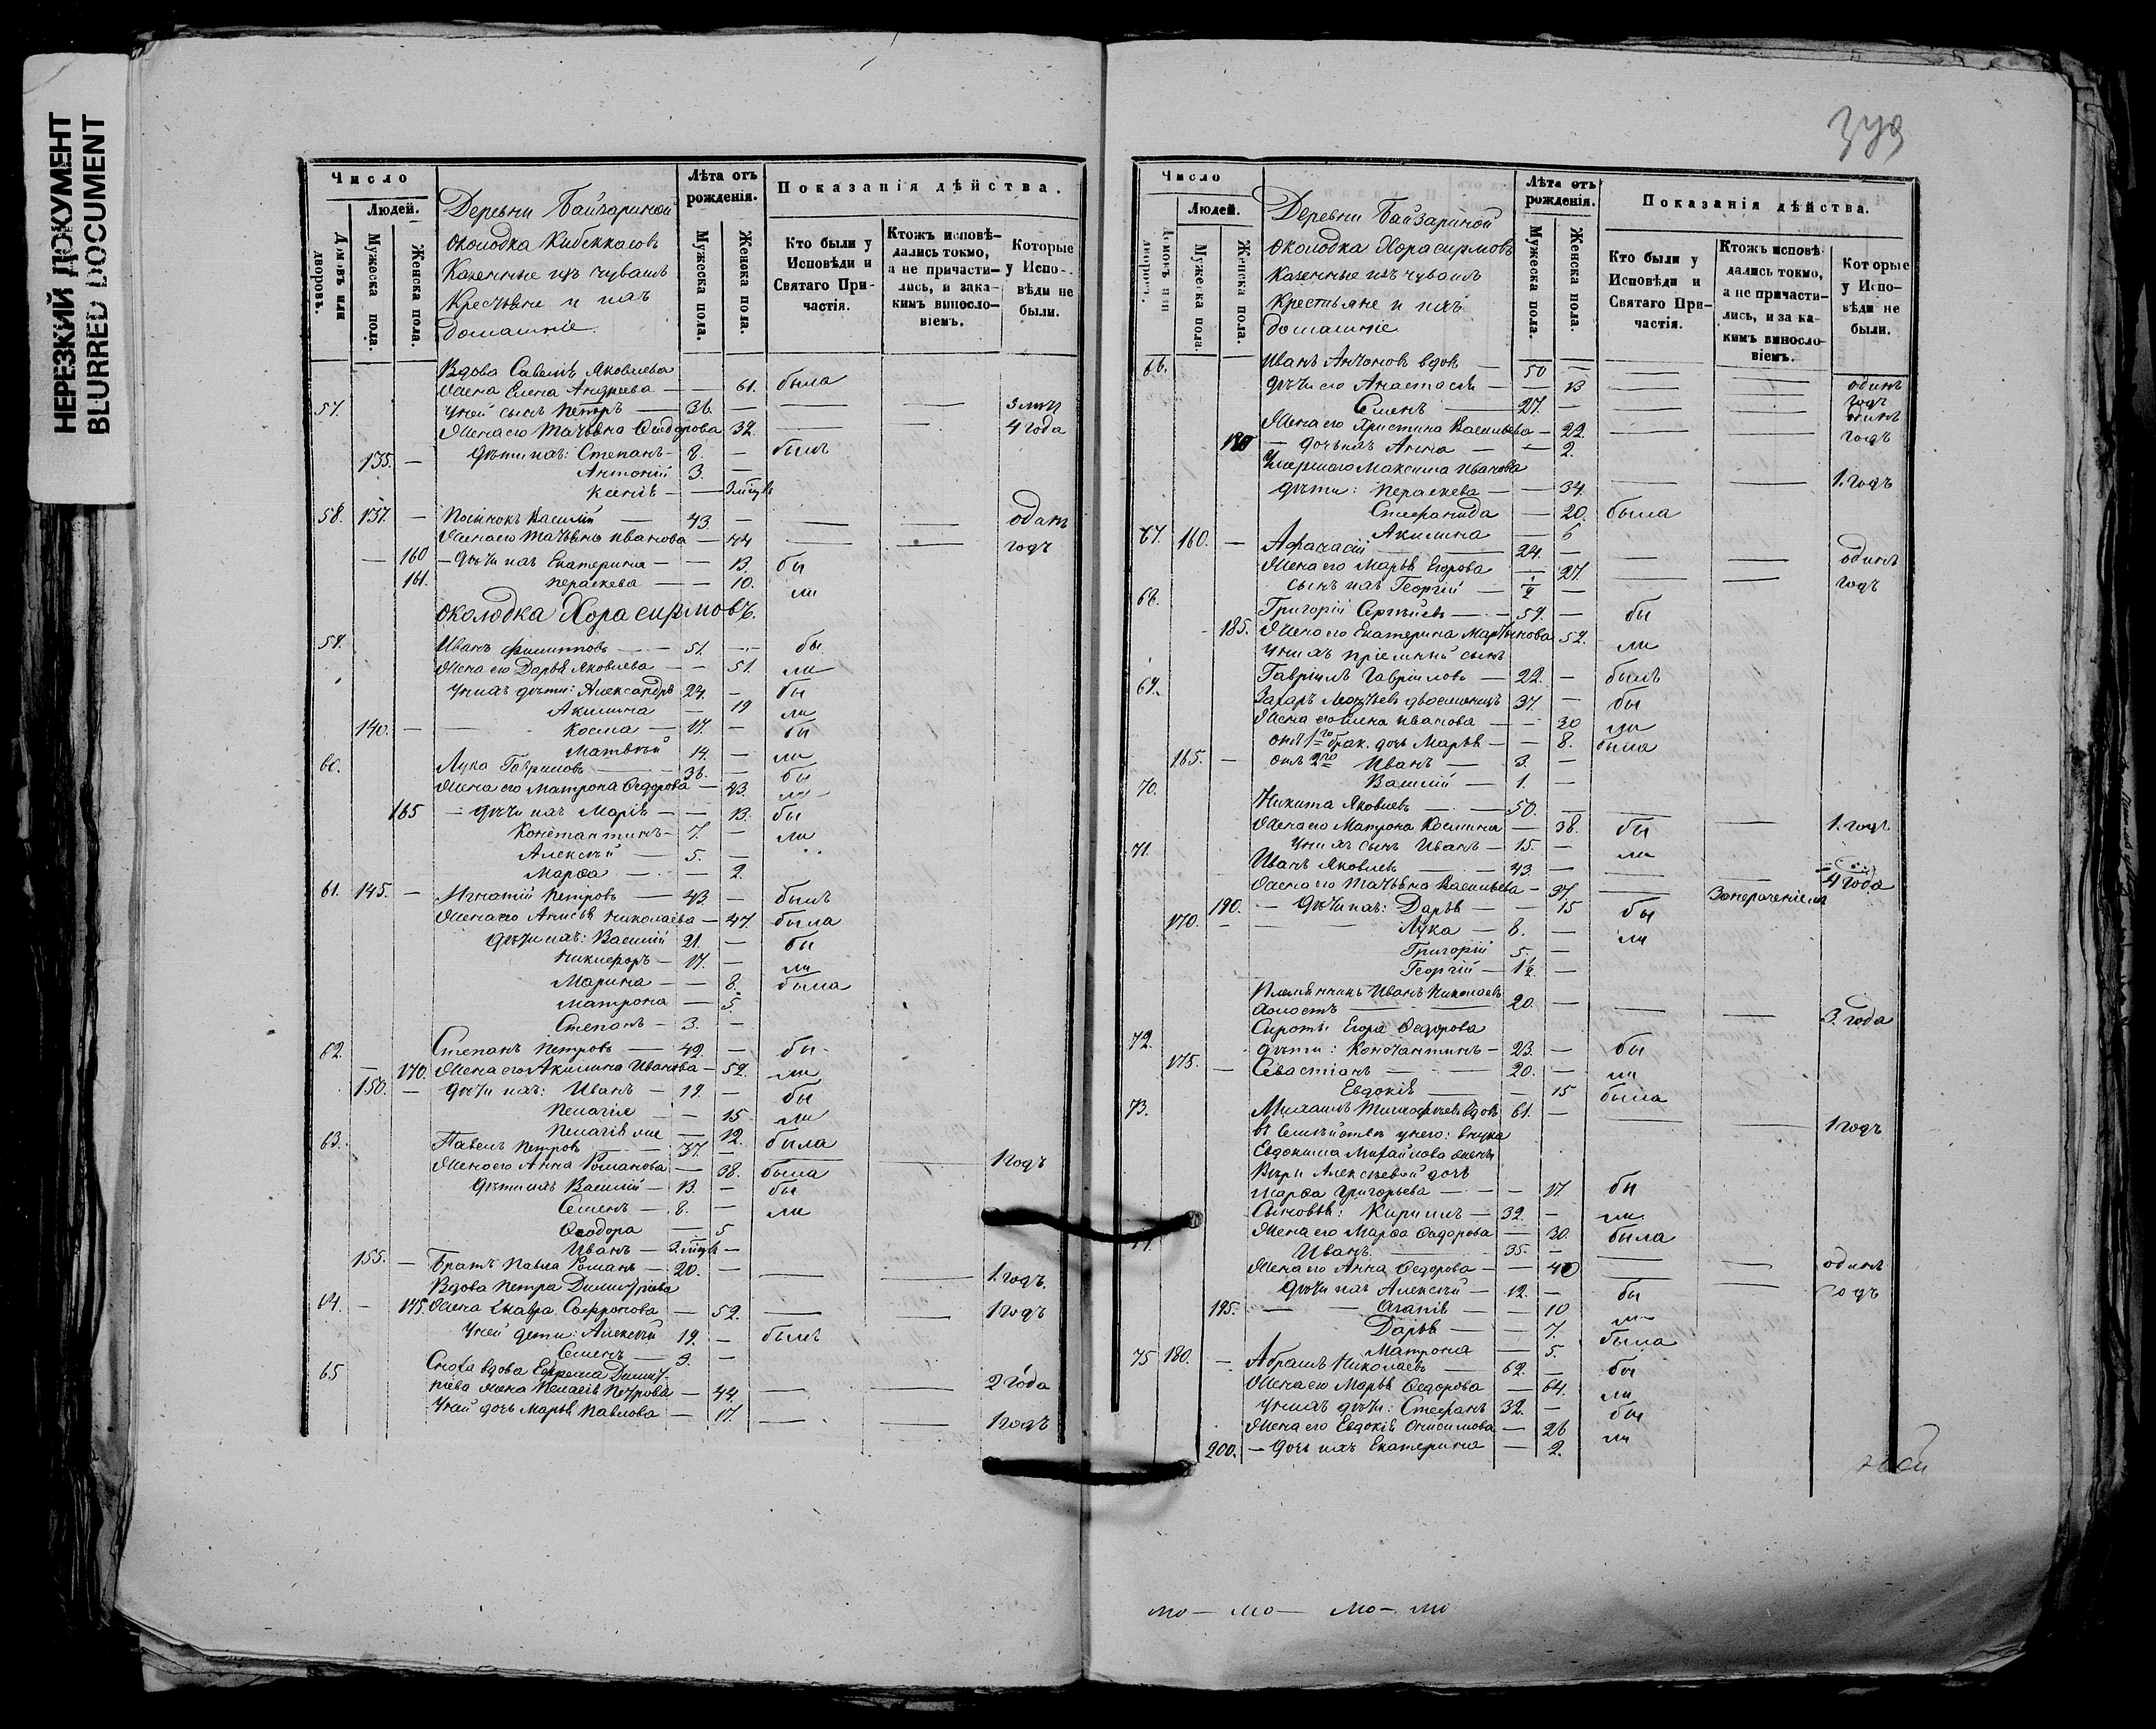 НЕРЕЗКИЙ ДОКУМЕНТ
BLURRED DOCUMENT
Число
Людей.
Домовъ или дворовъ.
Мужеска пола.
Женска пола.
Деревни Байзариной
околодка Кибеккасовъ
Казенные изъ чувашъ
Крестьяне и ихъ
домашніе.
Лѣта отъ рожденія.
Мужеска пола.
Женска пола.
Показанія дѣйства.
Кто были у Исповѣди и Святаго Причастія.
Ктожъ исповѣдались токмо, а не причастились, и за какимъ винословіемъ.
Которые у Исповѣди не были.
Вдова Савелія Яковлева
жена Елена Андреева — — 61. была
57. У ней сынъ Петръ — 36. — — — 3 лѣт
Жена его Татьяна Ѳедорова 32. — — 4 года
135. — дѣти ихъ: Степанъ — 8. — былъ
Антоній 3. —
Ксенія — — 3 мѣся
58. 137. — Пасынокъ Василій — 43. — — — одинъ
Жена его Татьяна Иванова — 44 — — годъ
— 160 — дѣти ихъ Екатерина — — 13. бы
161. Пераскева — — 10. ли
околодка Хорасирмовъ.
59. Иванъ Филипповъ — 51. — бы
Жена его Дарья Яковлева — — 51. ли
У нихъ дѣти: Александръ 24. — бы
Акилина — 19 ли
140. — — Косма — 17. — бы
Матвѣй 14. — ли
60. Лука Гавриловъ — 36. — бы
Жена его Матрона Ѳедорова — 43. ли
165 — дѣти ихъ Марія — — 13. бы
Константинъ — 7. — ли
Алексѣй — 5. —
Марѳа — — 2.
61. 145. — Игнатій Петровъ — 43 — былъ
Жена его Анисья Николаева — 47. была
дѣти ихъ: Василій 21. — бы
Никифоръ — 17. — ли
Марина — — 8. была
Матрона — 5.
Степанъ — 3. —
62. Степанъ Петровъ — 42. — бы
— 170. Жена его Акилина Иванова — 52. ли
150. — дѣти ихъ: Иванъ — 19. — бы
Пелагія — — 15 ли
Пелагія — 12.
63. Павелъ Петровъ — 37. — была — 1 годъ
Жена его Анна Романова — 38. была
Дѣти ихъ Василій — 13. — бы
Семенъ — 8. — ли
Ѳеодора — 5
Иванъ — 3 мѣся —
155. — Братъ Павла Романъ — 20. — — — 1. годъ.
Вдова Петра Димитріева
64. — 175. Жена Софронова — 52. — 1 годъ
У ней дети: Алексѣй 19. — былъ
Семенъ — 3. —
65 Сноха вдова Ефрема Димит-
ріева жена Пелагія Петрова — 44. — — 2 года
У ней дочь Марья Павлова — 17. — — 1 годъ
Число
Людей.
Домовъ или дворовъ.
Мужеска пола.
Женска пола.
Деревни Байзариной
околодка Хорасирмовъ
Казенные изъ чувашъ
Крестьяне и ихъ
домашніе
Лѣта отъ рожденія.
Мужеска пола.
Женска пола.
Показанія дѣйства.
Кто были у Исповѣди и Святаго Причастія.
Ктожъ исповѣдались токмо, а не причастились, и за какимъ винословіемъ.
Которые у Исповѣди не были.
66. Иванъ Антоновъ вдовъ — 50 — — —
дѣти его Анастасія — — 13 — — одинъ
Семенъ — 27. — — — годъ
Жена его Христина Васильева — 22. — — одинъ
180 — дочь ихъ Анна — — 2. годъ
Умершаго Максима Иванова
дѣти: Пераскева — — 34. — — 1. годъ
Стефанида — 20. была
Акилина — 6
67. 160. — Афанасій — 24. — — — одинъ
Жена его Марья Егорова — 27. — — годъ
сынъ ихъ Георгій — ½ —
68. Григорій Сергѣевъ — 59. — бы
185. Жена его Екатерина Мартынова 52. ли
У нихъ пріемный сынъ
Гавріилъ Гавріиловъ — 22. — былъ
69. Захаръ Леонтьевъ двоеженецъ 37 — бы
Жена его Елена Иванова — — 30 ли
отъ 1го брак. дочь Марья — — 8. была
165. — отъ 2го Иванъ — 3. —
Василій — 1. —
70. Никита Яковлевъ — 50. — — — 1. годъ
Жена его Матрона Космина — 38. бы
У нихъ сынъ Иванъ — 15. — ли
71. Иванъ Яковлевъ — 43. — — — 4 года
Жена его Татьяна Васильева — 37. —
190. — дѣти ихъ: Дарья — — 15 бы
170. — — Лука — 8. — ли
Григорій 5. —
Георгій — 1½ —
Племянникъ Иванъ Николаевъ
холостъ — 20. — — — 3. года
Сироты Егора Ѳедорова
72. дѣти: Константинъ — 23. — бы
175. — Севастіанъ — 20. — ли
Евдокія — — 15 была
73. Михаилъ Тимофеевъ вдовъ 61. — — — 1 годъ
въ семействѣ у него: внука
Евдокима Михайлова жены
Вѣры Алексѣевой дочь
Марѳа Григорьева — — 17. бы
Сыновья: Кирилъ — 32. — ли
Жена его Марѳа Ѳедорова — 30. была
Иванъ — 35. — — — одинъ
Жена его Анна Ѳедорова — — 40 — — годъ
дѣти ихъ Алексѣй — 12. — бы
195. — — Агапія — — 10 ли
Дарья — — 7. была
Матрона — 5.
75 180. — Абрамъ Николаевъ — 62. — бы
Жена его Марья Ѳедорова — 64. ли
У нихъ дѣти: Стефанъ 32. — бы
Жена его Евдокія Онисимова — 26 ли
200. — дочь ихъ Екатерина — 2.